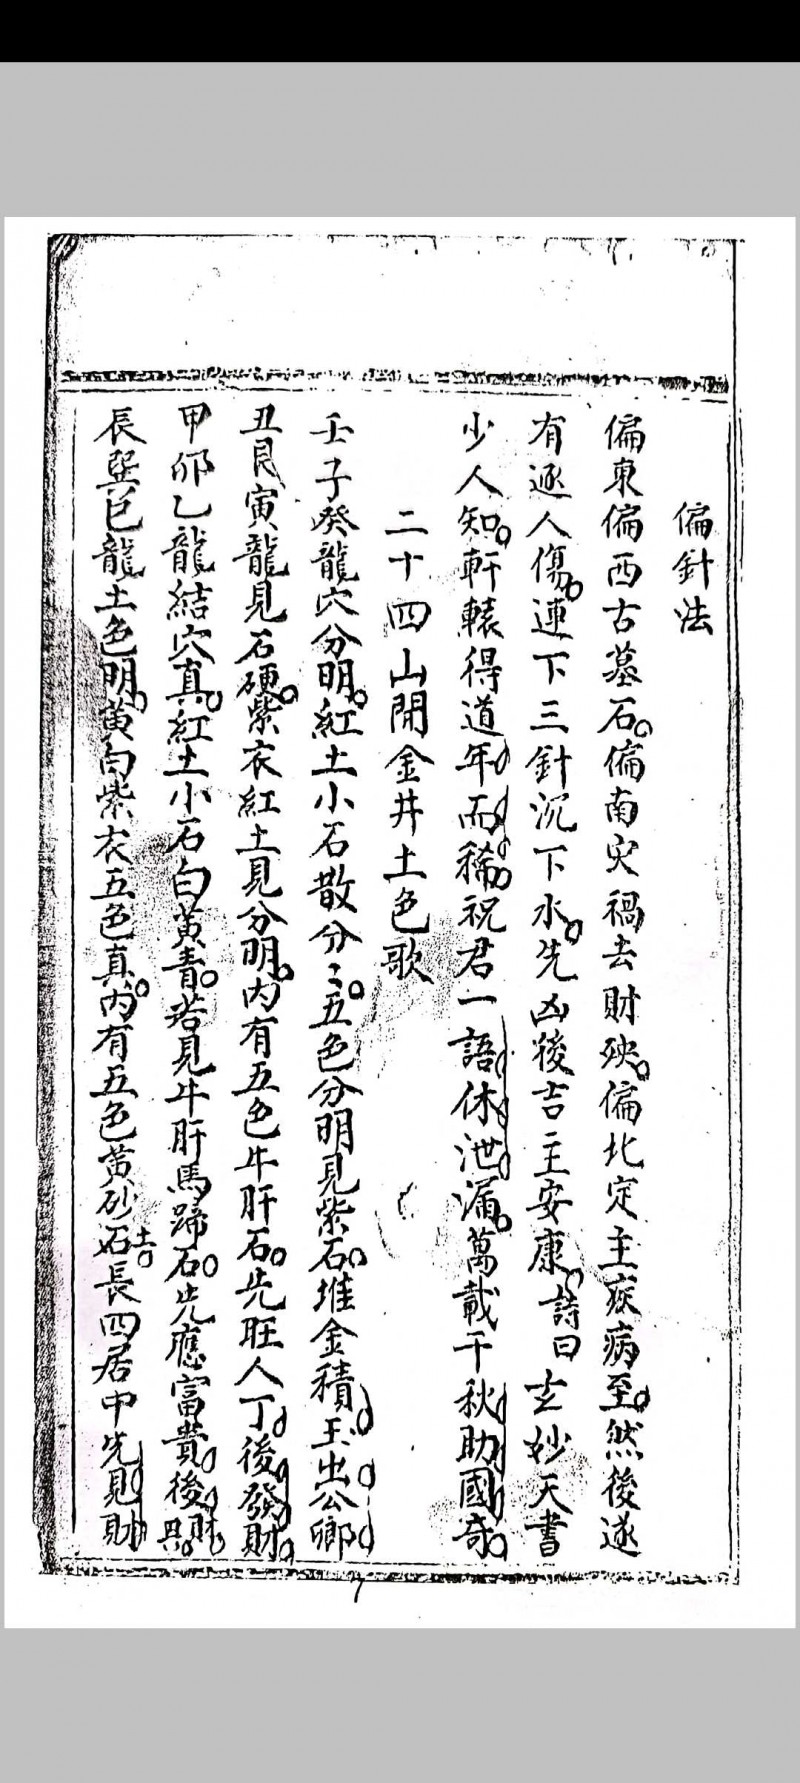 偏針法
偏東偏西古墓石。偏南灾禍去財殃。偏北定主疾病至。然後逐
有逐人傷。連下三針沉下水。先凶後吉主安康。詩曰玄妙天書
少人知。軒轅得道年而稀。祝君一語休泄漏。萬載千秋助國奇。
二十四山開金井土色歌
壬子癸龍穴分明。紅土小石散分〻。五色分明見紫石。堆金積玉出公卿
丑艮寅龍見石硬。紫衣紅土見分明。内有五色牛肝石。先旺人丁後發財。
甲卯乙龍結穴真。紅土小石白黃青。若見牛肝馬蹄石。先應富貴後財興。
辰巽巳龍土色明。黃白紫衣五色真。内有五色黃砂石土。長四居中先見財
7